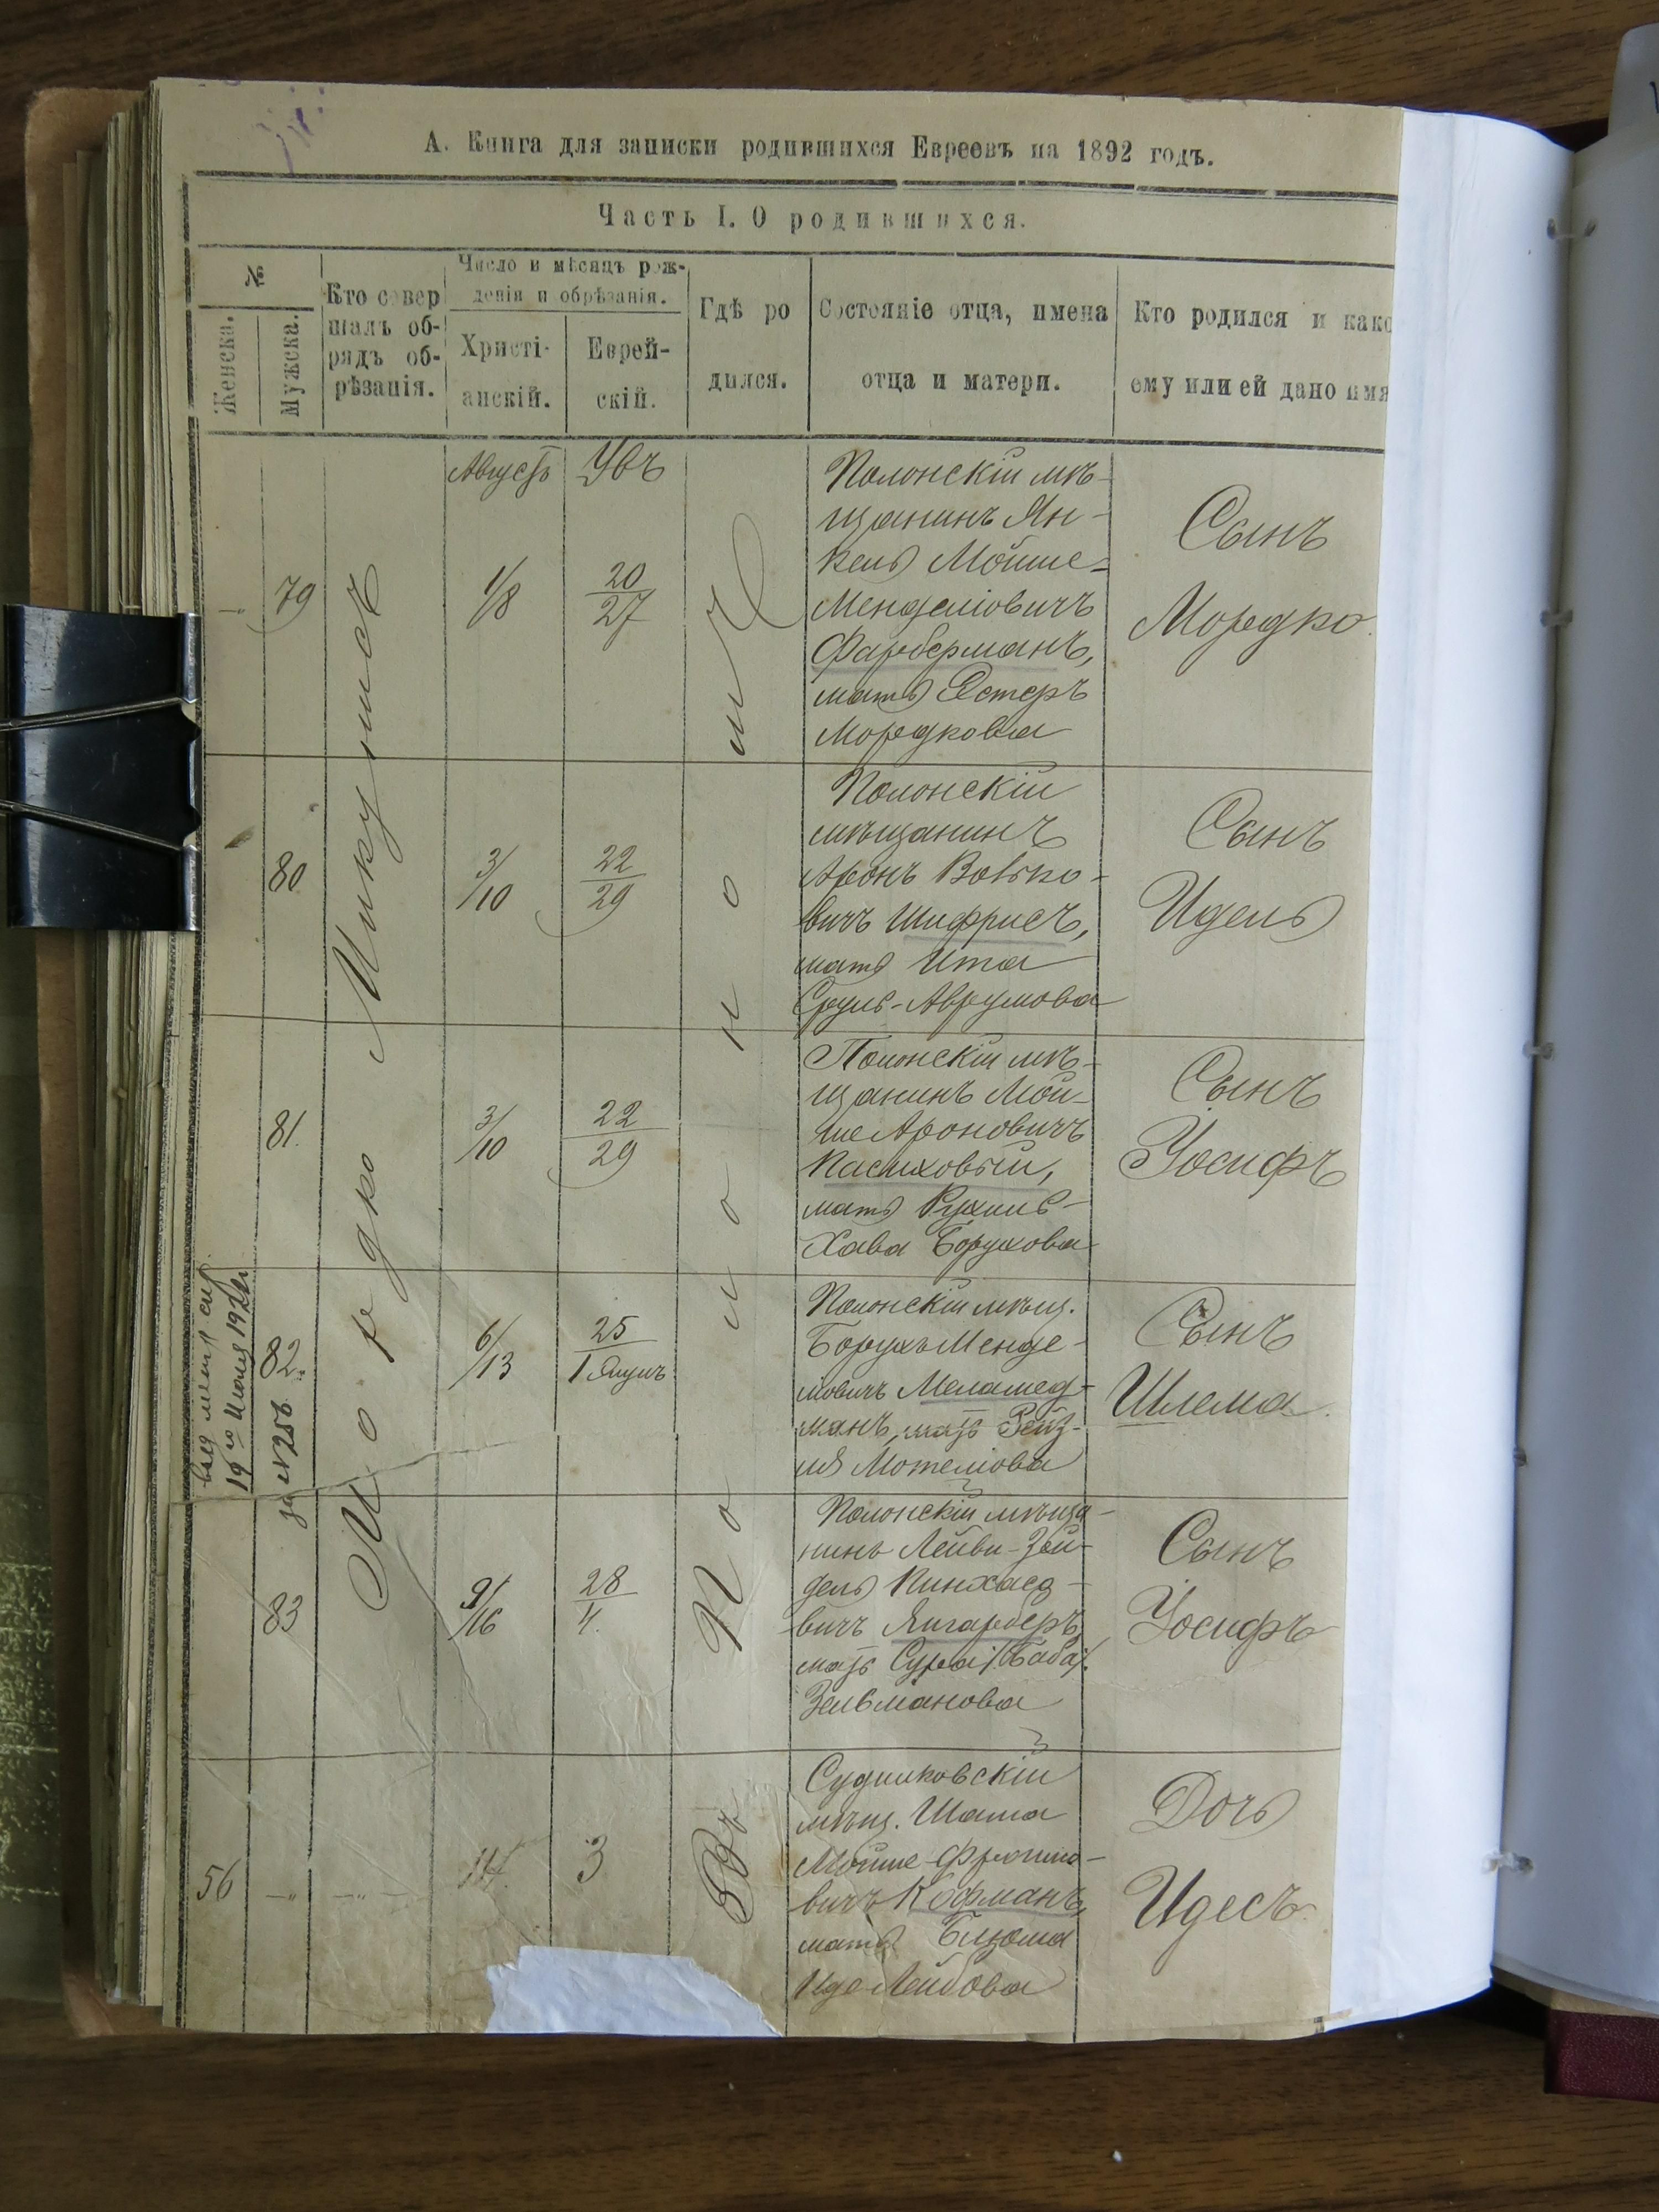 А. Книга для записки родившихся Евреевъ на 1892 годъ.
Часть I. О родившихся.
№
Женска.
Мужска.
Кто совер
шалъ об-
рядъ об-
рѣзанія.
Число и мѣсяцъ рож-
денія и обрѣзанія.
Христі-
анскій.
Еврей-
скій.
Гдѣ ро
дился.
Состояніе отца, имена
отца и матери.
Кто родился и како
ему или ей дано имя
Мордко
Въ Полонномъ
79
Августъ
1/8
Увъ
20
27
Полонскій мѣ-
щанинъ Ян-
кель Мойше-
Менделіовичъ
Фарберманъ,
мать Эстеръ
Мордкова
Сынъ
Мордко.
80
3/10
22
29
Полонскій
мѣщанинъ
Аронъ Волько-
вичъ Шифрисъ,
мать Ита
Сруль-Аврумова
Сынъ
Идель
81.
3/10
22
29
Полонскій мѣ-
щанинъ Мой-
ше Ароновичъ
мать Рухиль-
Хава Борухова
Сынъ
Іосифъ
19го
за №256
82.
6/13
25
1 Элулъ
Полонскій мѣщ.
Борухъ Менде-
ліовичъ Меламед-
манъ, мать Рейз-
ля Мотеліова
Сынъ
Шлема.
83
9/16
28
4.
Полонскій мѣща-
нинъ Лейви-Зей-
дель Пинхасо-
вичъ Янгарберъ,
мать Сура /Баба/.
Зельманова
Сынъ
Іосифъ
56
—"—
—"—
14.
3
Судилковскій
мѣщ. Шама
Мойше-Фроимо-
вичъ Кофманъ,
мать Блюма
Иде Лейбова
Дочь
Идесъ.